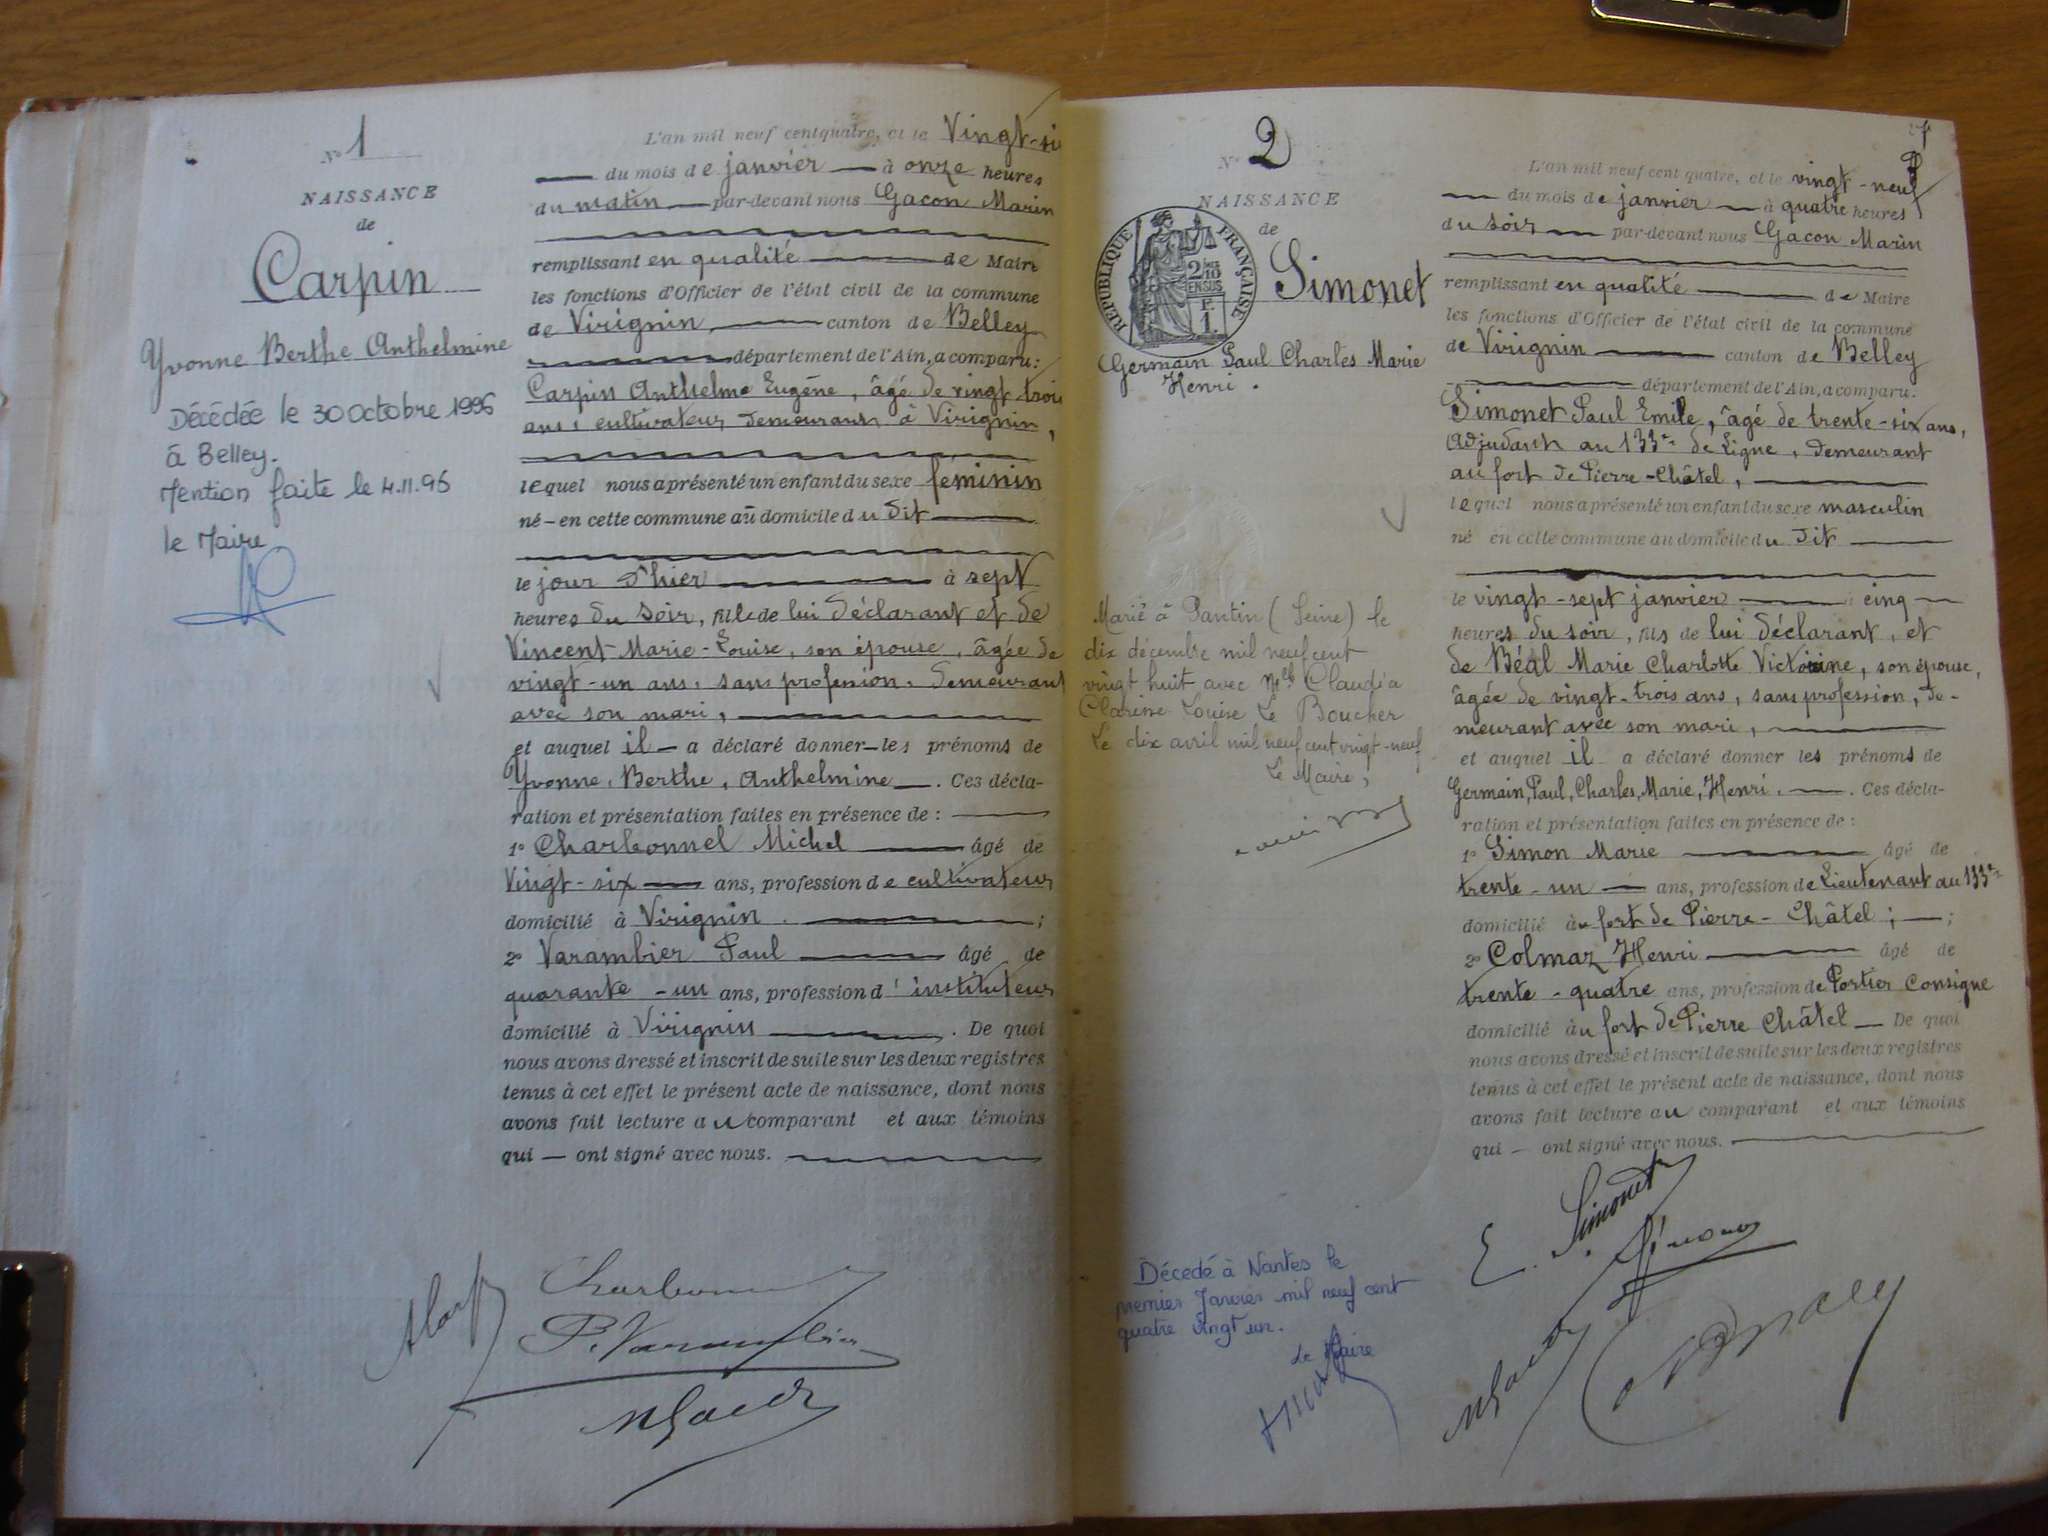 Nº 1
NAISSANCE
de
Carpin
Yvonne Berthe Anthelmine
Décédée le 30 octobre 1996
à Belley.
Mention faite le 4.11.96
le Maire
L'an mil neuf cent quatre, et le Vingt-si
du mois de janvier à onze heures
du matin par-devant nous Gacon Marin
remplissant en qualité de Maire
les fonctions d'Officier de l'état civil de la commune
de Virignin canton de Belley
département de l'Ain, a comparu:
Carpin Anthelme Eugène, âgé de vingt-trois
ans, cultivateur demeurant à Virignin,
lequel nous a présenté un enfant du sexe féminin
né-en cette commune au domicile du dit
le jour d'hier à sept
heures du soir, fille de lui déclarant et de
Vincent Marie-Louise, son épouse, âgée de
vingt-un ans, sans profession, demeurant
avec son mari,
et auquel il a déclaré donner les prénoms de
Yvonne, Berthe, Anthelmine. Ces décla-
ration et présentation faites en présence de :
1º Charbonnel Michel âgé de
Vingt-six ans, profession de cultivateur
domicilié à Virignin ;
2º Varambier Paul âgé de
quarante-un ans, profession d'instituteur
domicilié à Virignin. De quoi
nous avons dressé et inscrit de suite sur les deux registres
tenus à cet effet le présent acte de naissance, dont nous
avons fait lecture au comparant et aux témoins
qui — ont signé avec nous.
P. Varambier
Nº 2
NAISSANCE
de
REPUBLIQUE FRANÇAISE
2/10
EN SUS
F.
1.
Simonet
Germain Paul Charles Marie
Henri.
Marié à Pantin (Seine) le
dix décembre mil neuf cent
vingt huit avec Mlle Claudia
Clarisse Louise Le Boucher
Le dix avril mil neuf cent vingt-neuf
Le Maire,
Décédé à Nantes le
premier Janvier mil neuf cent
quatre vingt un.
Le Maire
L'an mil neuf cent quatre, et le vingt-neuf
du mois de janvier à quatre heures
du soir par-devant nous Gacon Marin
remplissant en qualité de Maire
les fonctions d'Officier de l'état civil de la commune
de Virignin canton de Belley
département de l'Ain, a comparu:
Simonet Paul Emile, âgé de trente-six ans,
Adjudant au 133e de Ligne, demeurant
au fort de Pierre-Châtel,
lequel nous a présenté un enfant du sexe masculin
né en cette commune au domicile du dit
le vingt-sept janvier à cinq
heures du soir, fils de lui déclarant, et
de Béal Marie Charlotte Victorine, son épouse,
âgée de vingt-trois ans, sans profession, de-
meurant avec son mari,
et auquel il a déclaré donner les prénoms de
Germain, Paul, Charles, Marie, Henri. Ces décla-
ration et présentation faites en présence de :
1º Simon Marie âgé de
trente-un ans, profession de Lieutenant au 133e
domicilié au fort de Pierre-Châtel ;
2º Colmar Henri âgé de
trente-quatre ans, profession de Portier Consigne
domicilié au fort de Pierre Châtel De quoi
nous avons dressé et inscrit de suite sur les deux registres
tenus à cet effet le présent acte de naissance, dont nous
avons fait lecture au comparant et aux témoins
qui — ont signé avec nous.
E. Simonet